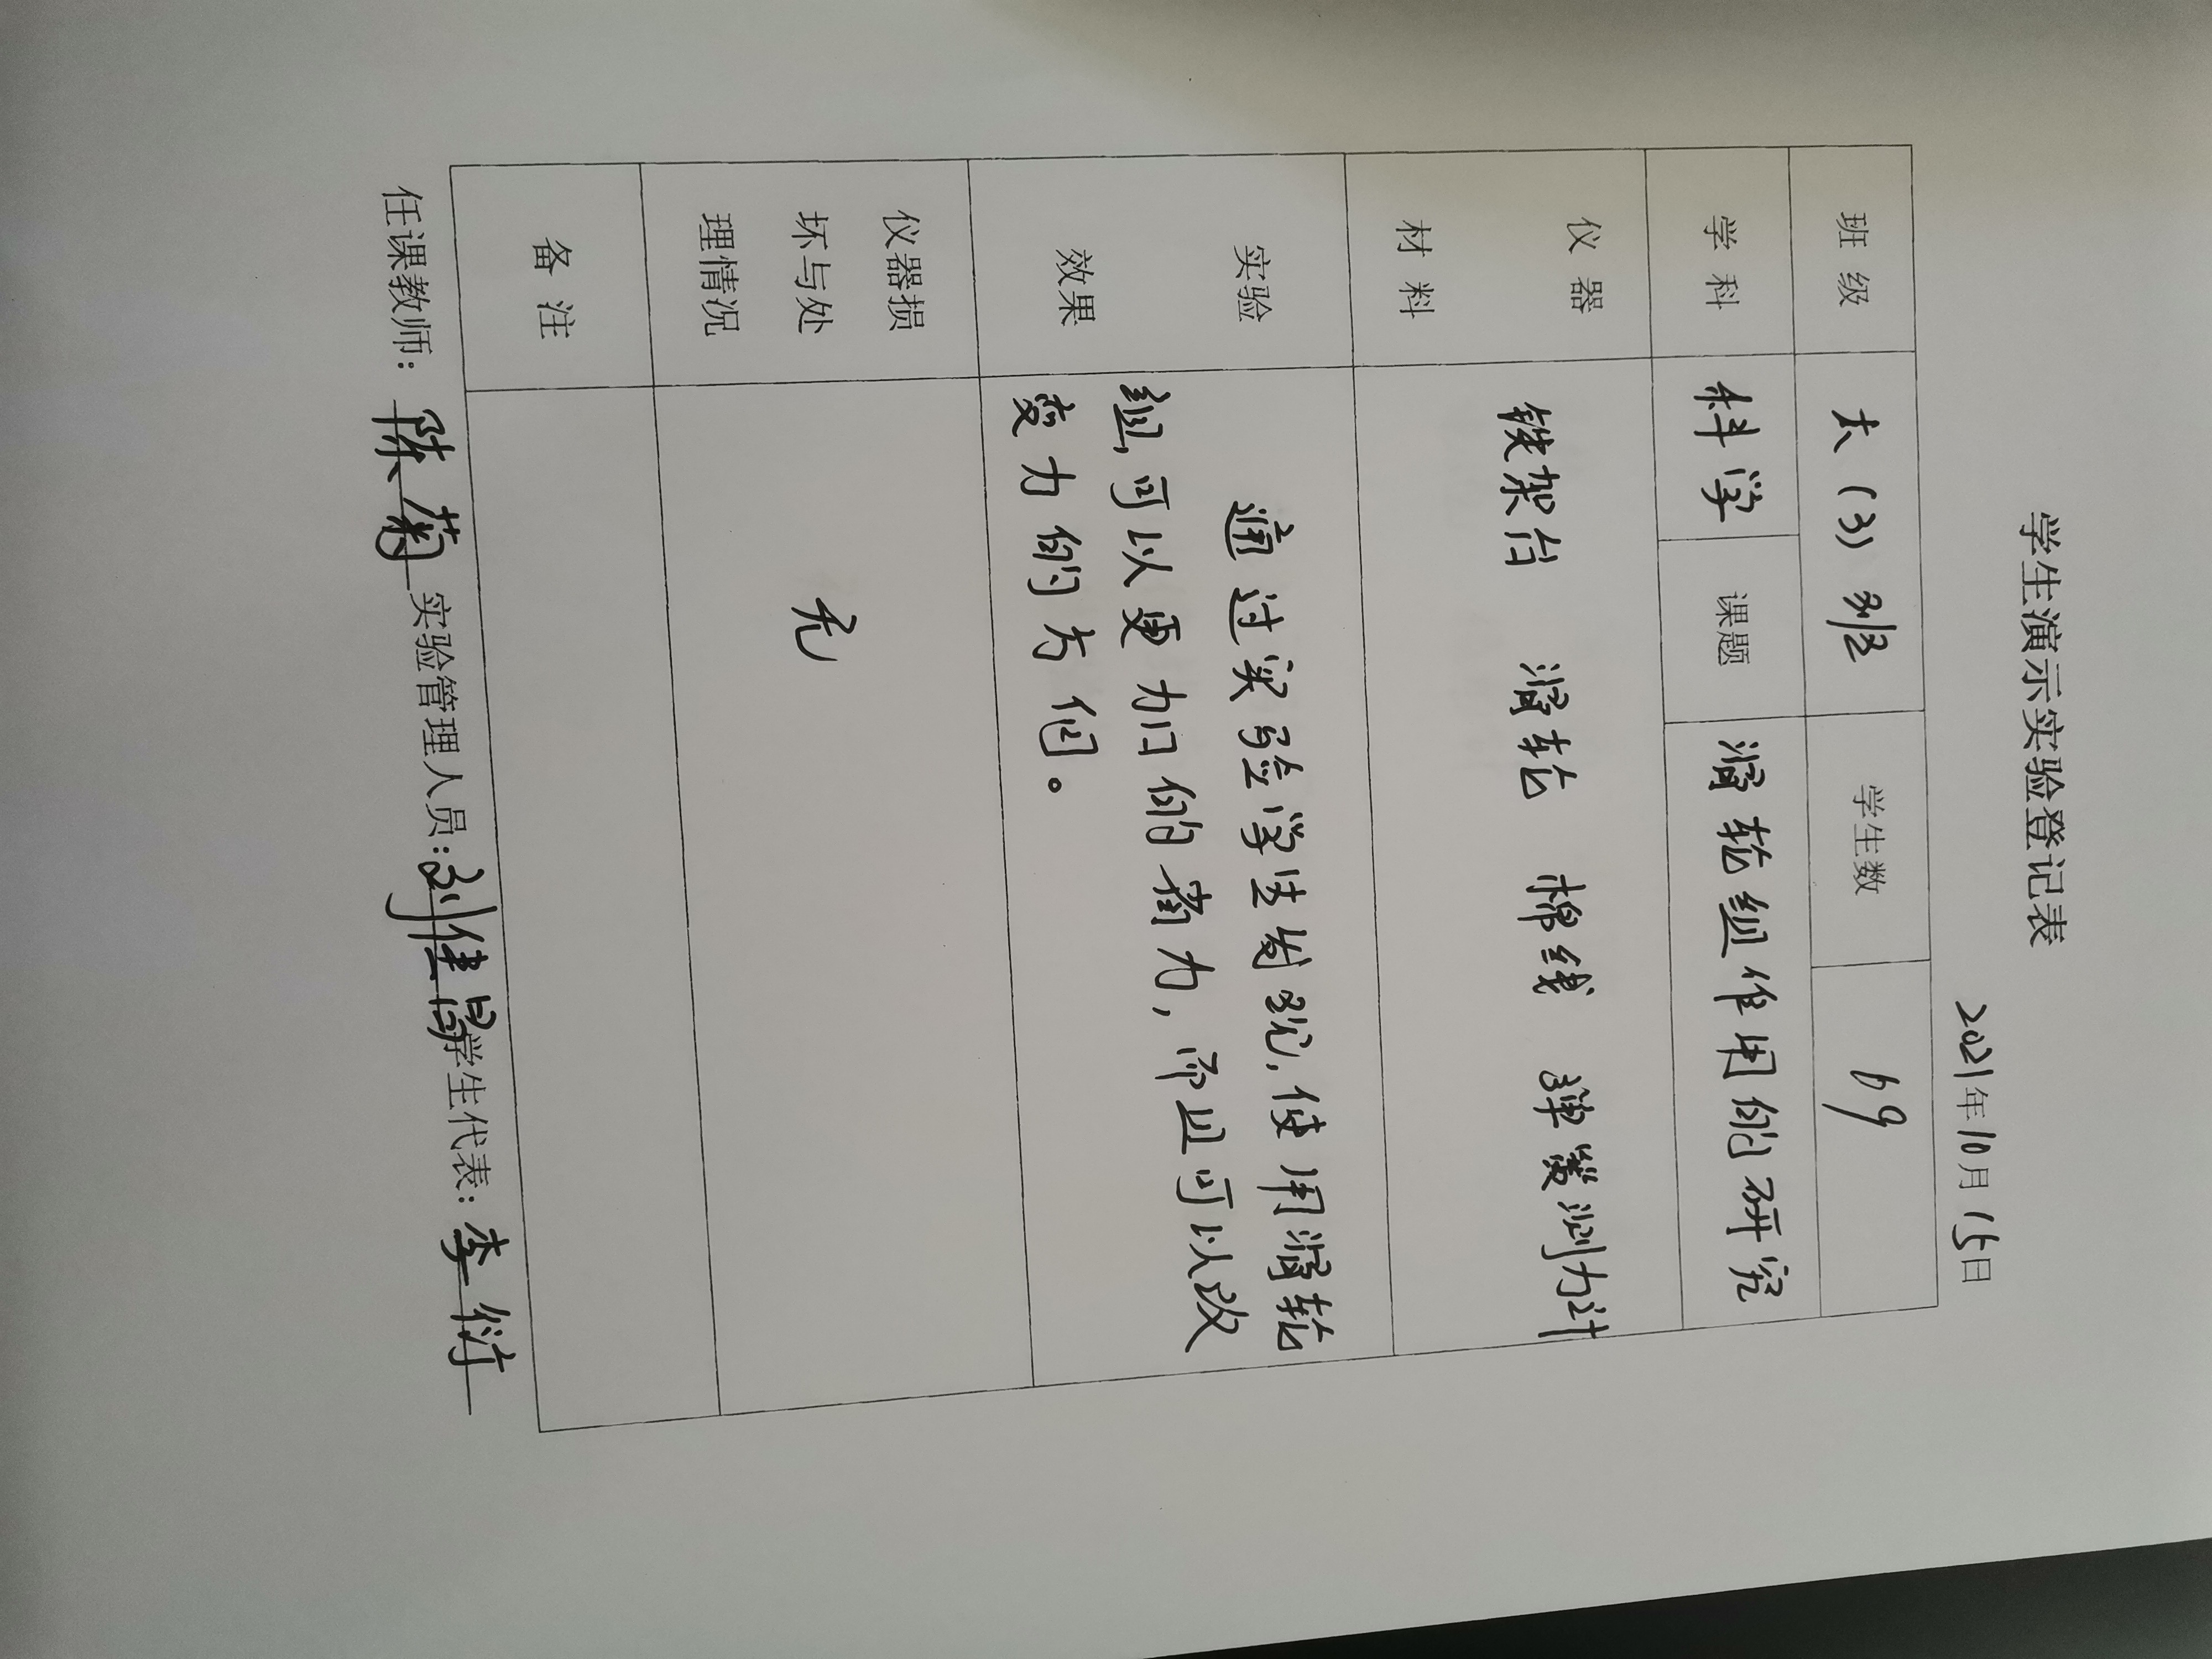 学生演示实验登记表
2021年10月15日
班 级 六(3)班 学生数 69
学 科 科学 课题 滑轮组作用的研究
仪 器
材 料
铁架台 滑轮 棉线 弹簧测力计
实验
效果
通过实验学生发现,使用滑轮
组,可以更加的省力,而且可以改
变力的方向。
仪器损
坏与处
理情况
无
备 注
任课教师: 陈菊 实验管理人员: 刘佳昌 学生代表: 李衍